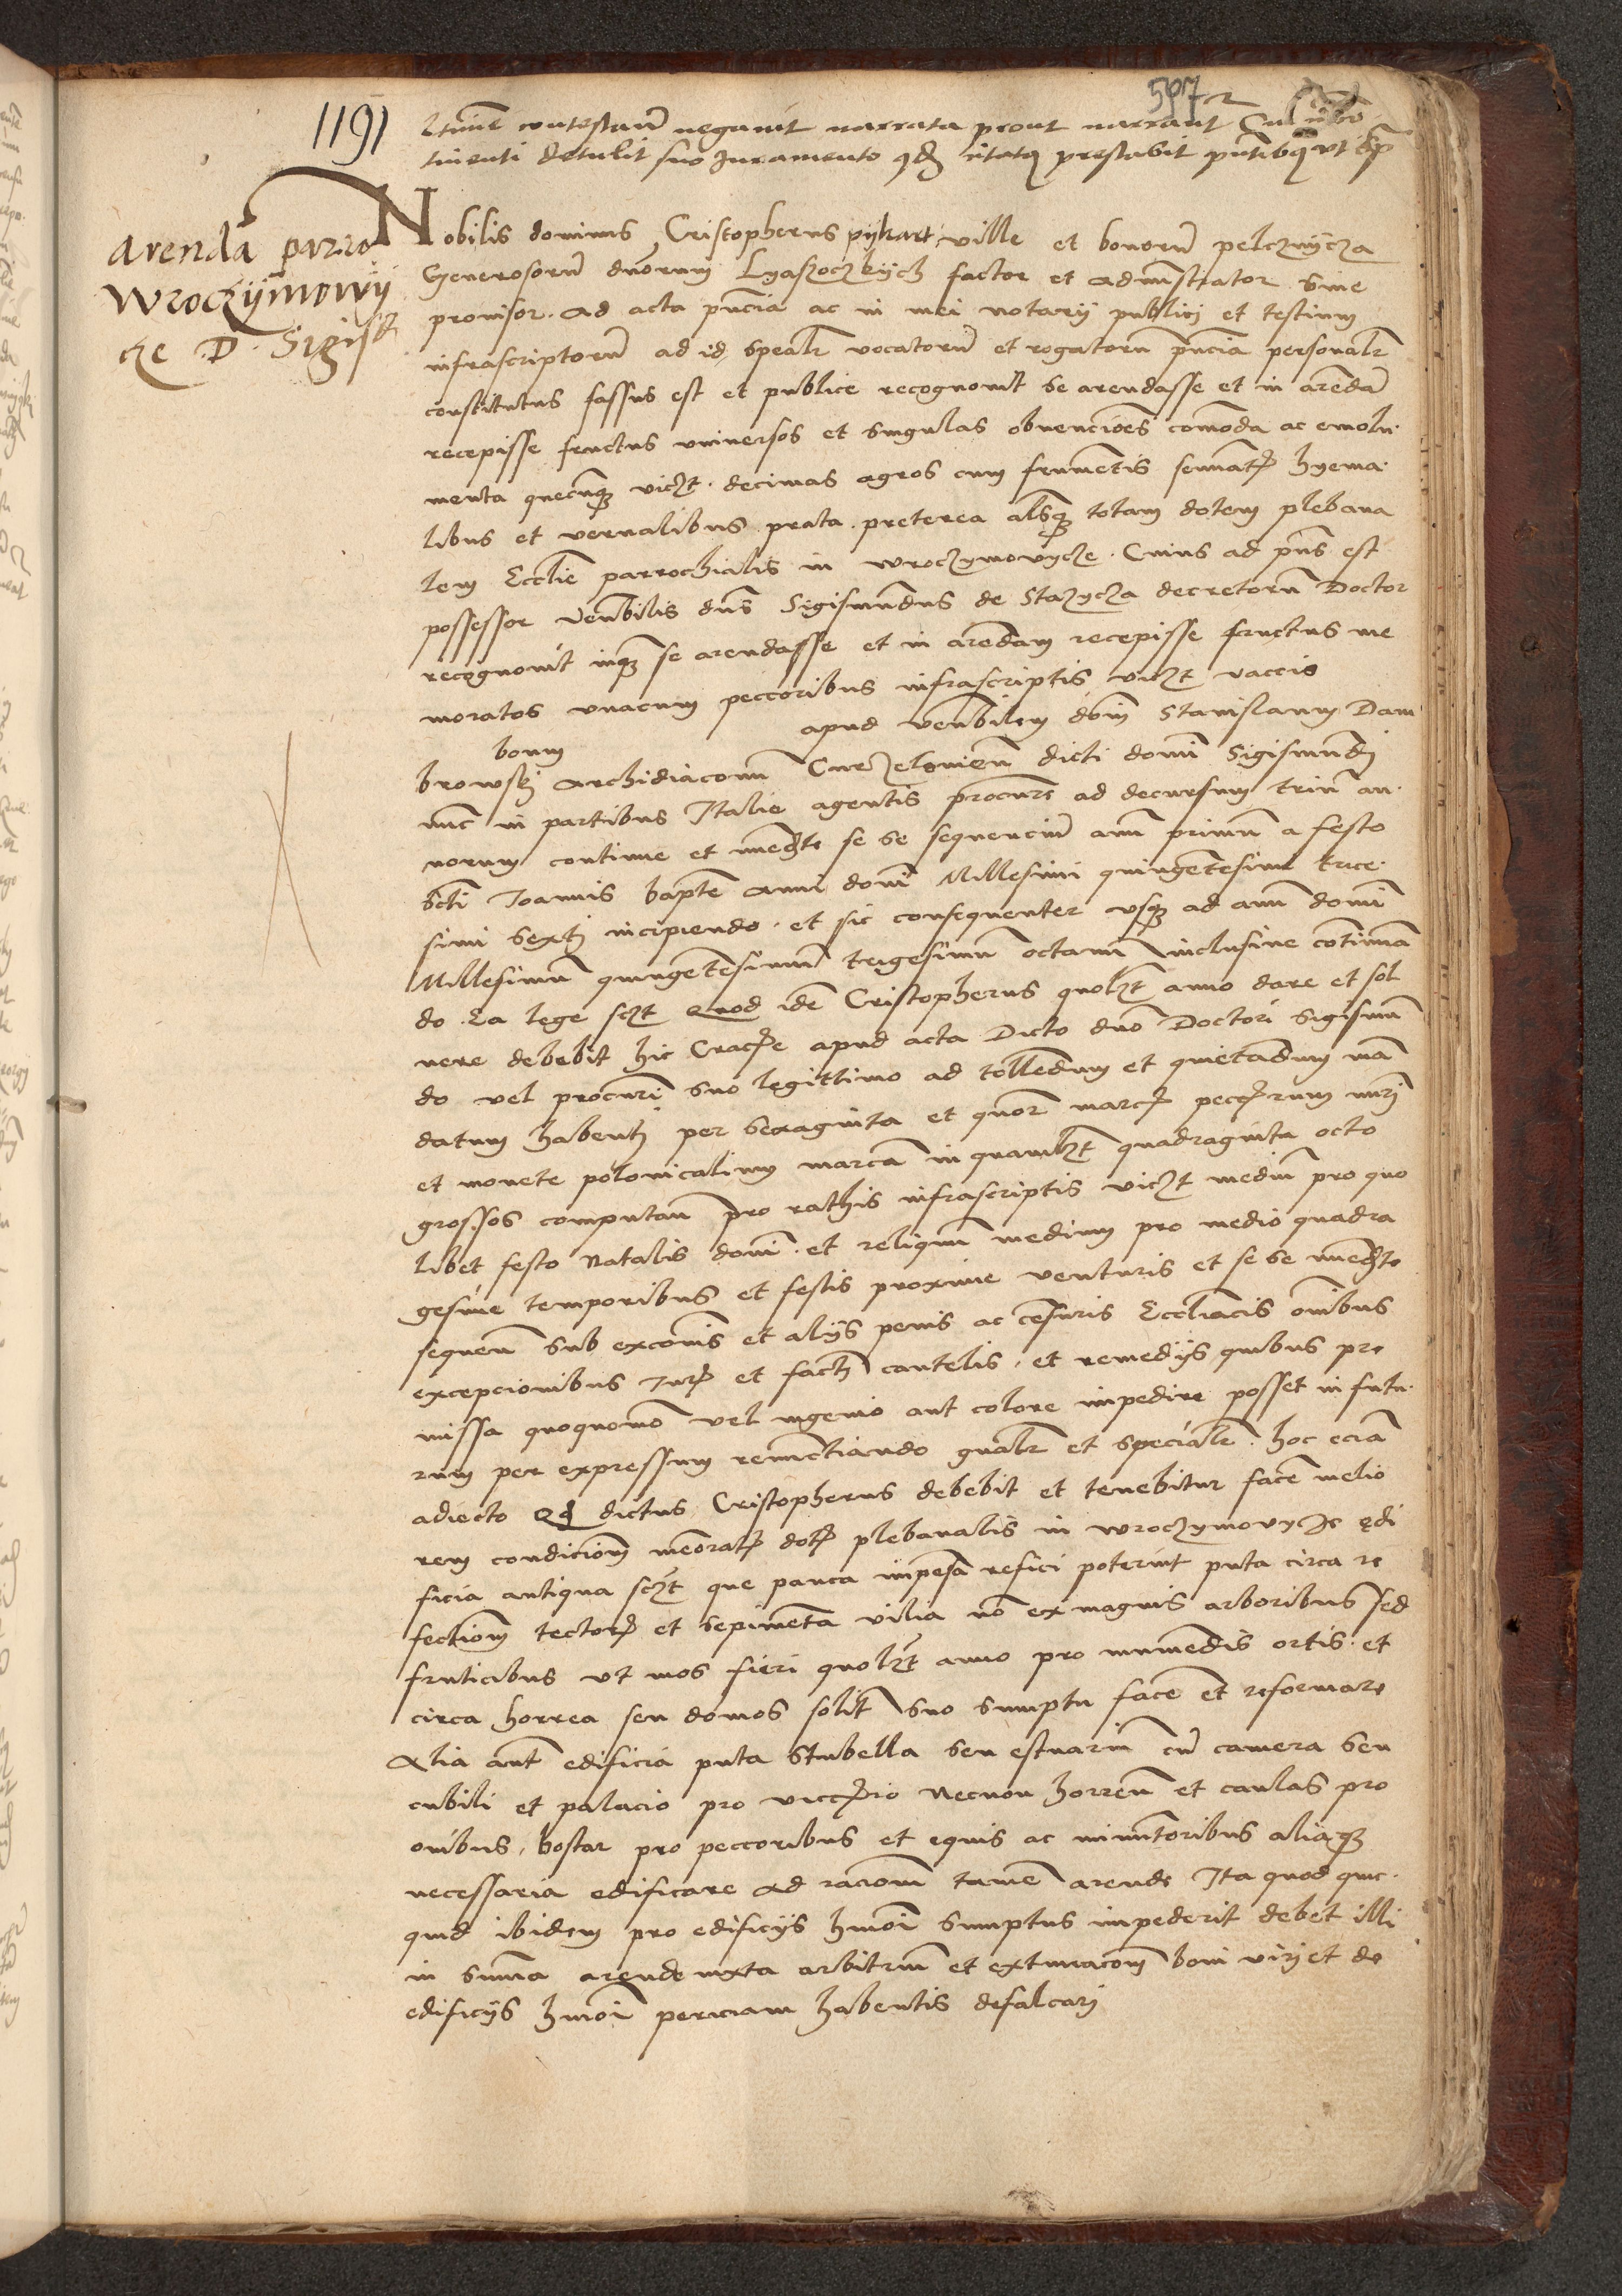 597
1191
litiue contestaner negauit narrata prout narrant Cui
tinenti detulit suo Iuramento qd prestabit pntibq vt sp
arenda parro
Wroczijmowij
cze D. Sigis
Nobilis dominus Cristopherus pijkart ville et bonoru pelcznijcza
Generosoru dnorum Lgaszoczkijch factor et administrator siue
prouisor. Ad acta pncia ac in mei notarij publicj et testium
infrascriptoru ad id spealr vocatoru et rogatoru pncia personalr
constitutus fassus est et publice recognouit se arendasse et in arenda
recepisse fructus vniuersos et singulas obuencioes comoda ac emolu.
menta quecunq viczt. decimas agros cum frumetis seminatz hyema.
libus et vernalibus prata. preterea alsq totam dotem plebana
lem Ecclie parrochialis in wroczymovycze. Cuius ad pns est
possessor venbilis dns Sigismundus de Stazycza decretoru Doctor
recognouit inq se arendasse et in arendam recepisse fructus me
moratos vnacum peccoribus infrascriptis viczt vaccis
bouum apud venbilem dom Stanislaum Dam
browskj Archidiaconu Curzelouien dicti domi Sigismundj
nuc in partibus Italie agentis procure ad decursum triu an.
norum continue et imedte se se sequenciu anu primu a festo
scti Joannis bapte anni domi Millesimi quingetesimi trice.
simi sextj incipiendo. et sic consequenter vsq ad anu domi
Millesimu quingetesimum trigesimu octauu inclusiue cotinua
do. Ea lege sczt Quod ide Cristopherus quolzt anno dare et sol
uere debebit hic Cracie apud acta Dicto dno Doctori Sigismu
do vel procuri suo legittimo ad tolledum et quietadum ma
datum habentj per sexaginta et quor marcz pecczrum nurj
et monete polonicalium marca in quamlzt quadraginta octo
grossos computan pro rathis infrascriptis viczt mediu pro quo
libet festo Natalis domi. et reliquu medium pro medio quadra
gesime temporibus et festis proxime venturis et se se imedte
sequen sub excois et alijs penis ac cesuris Ecclіacis oibus
excepcionibus Jurz et factj cautelis. et remedijs quibus pre
missa quoquomo vel ingenio aut colore impedire posset in futu.
rum per expressum renuctiando gnalr et specialr. hoc ecia
adiecto Qd dictus Cristopherus debebit et tenebitur face melio
rem condiciom meoratz dotz plebanalis in wroczymovycze edi
ficia antiqua sczt que pauca impesa refici poterint puta circa re
fectiom tectorz et sepimeta vilia no ex magnis arboribus sed
fruticibus vt mos fieri quolzt anno pro muniedis ortis. et
circa horrea seu domos solit suo sumptu face et reformare
Alia aut edificia puta Stubella seu estuariu cu camera seu
cubili et palacio pro viccrio Necnon horreu et caulas pro
ouibus, bostar pro peccoribus et equis ac minutoribus aliaq
necessaria edificare Ad raciom tame arende Ita quod quic.
quid ibidem pro edificijs hmoi sumptus impederit debet illi
in suma arende iuxta arbitriu et extimaciom boni virj et de
edificijs hmoi periciam habentis defalcarj